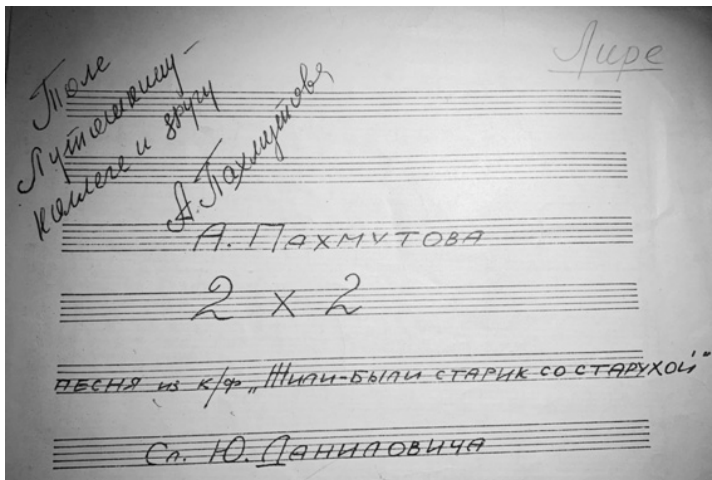 Лире
Толе
Лутошкину -
коллеге и другу
А. Пахмутова
А. ПАХМУТОВА
2 х 2
ПЕСНЯ из к/ф „Жили-были старик со старухой"
Сл. Ю. Даниловича